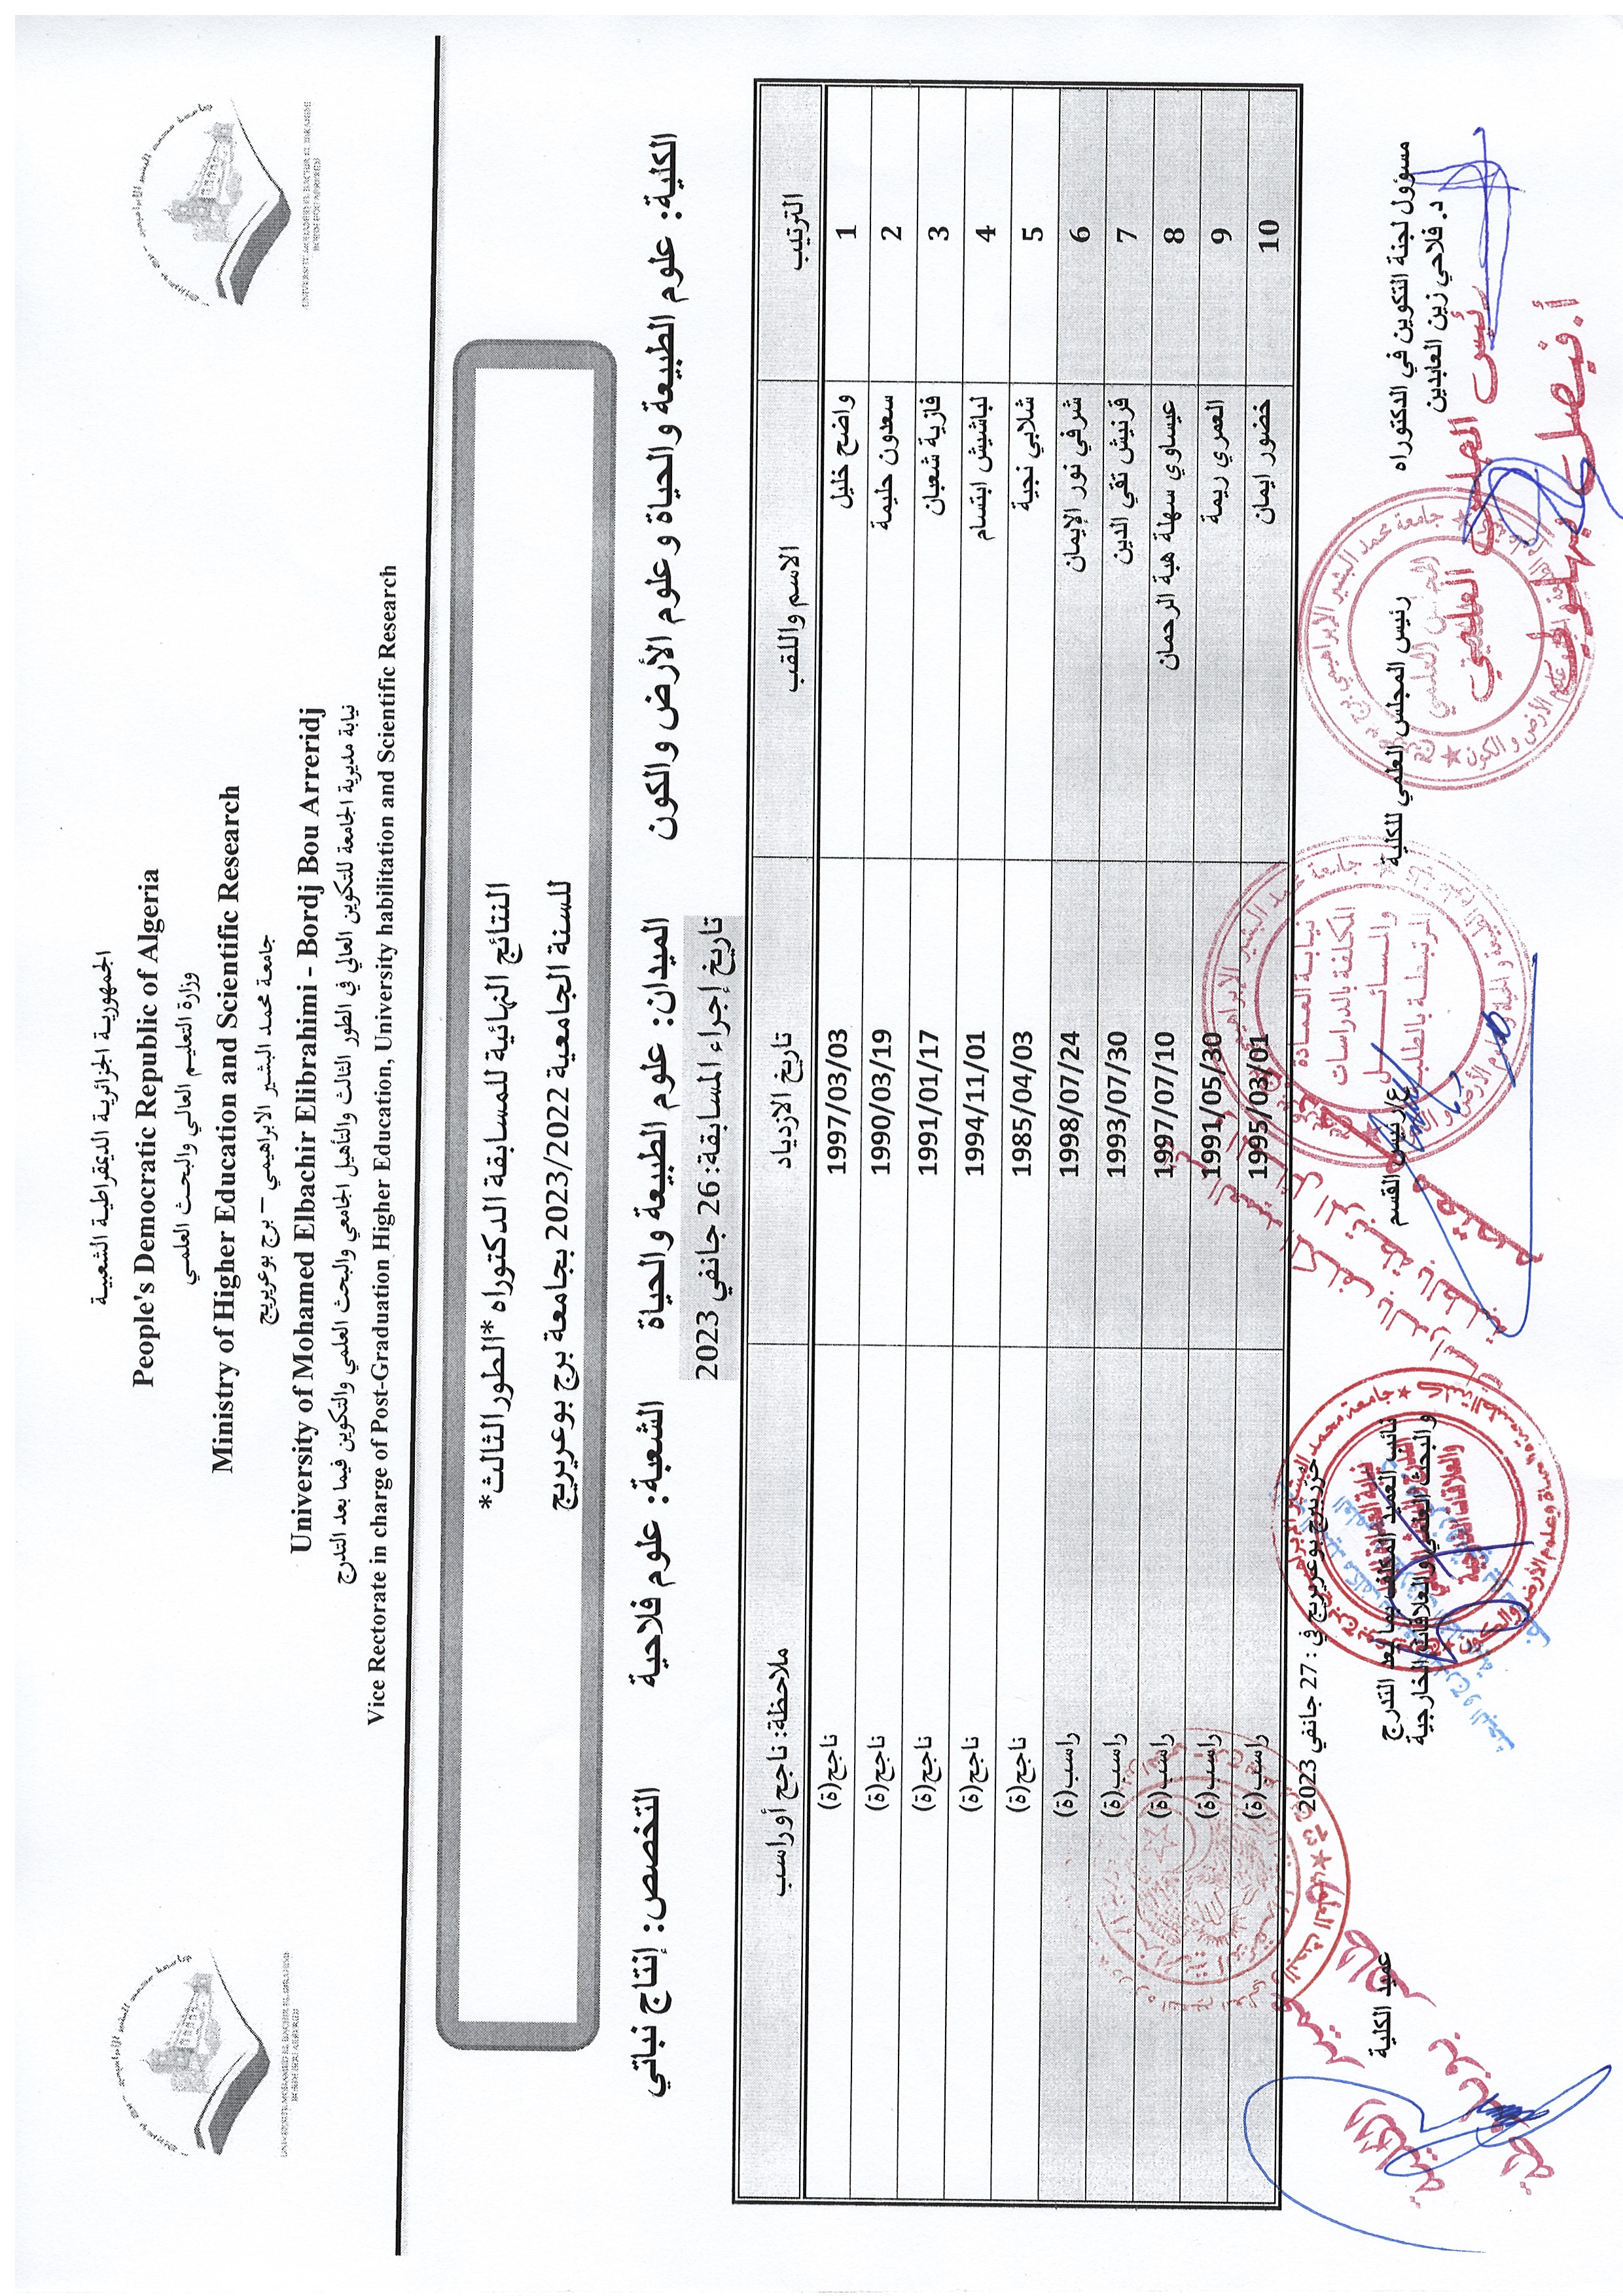 الجمهورية الجزائرية الديمقراطية الشعبية
People's Democratic Republic of Algeria
وزارة التعليم العالي والبحث العلمي
Ministry of Higher Education and Scientific Research
جامعة محمد البشير الابراهيمي – برج بوعريريج
University of Mohamed Elbachir Elibrahimi - Bordj Bou Arreridj
نيابة مديرية الجامعة للتكوين العالي في الطور الثالث والتأهيل الجامعي والبحث العلمي والتكوين فيما بعد التدرج
Vice Rectorate in charge of Post-Graduation Higher Education, University habilitation and Scientific Research
النتائج النهائية للمسابقة الدكتوراه *الطور الثالث*
للسنة الجامعية 2023/2022 بجامعة برج بوعريريج
الكلية: علوم الطبيعة والحياة وعلوم الأرض والكون الميدان: علوم الطبيعة والحياة الشعبة: علوم فلاحية التخصص: إنتاج نباتي
تاريخ إجراء المسابقة: 26 جانفي 2023
الترتيب الاسم واللقب تاريخ الازدياد ملاحظة: ناجح أوراسب
1 واضح خليل 1997/03/03 ناجح(ة)
2 سعدون حليمة 1990/03/19 ناجح(ة)
3 فازية شعبان 1991/01/17 ناجح(ة)
4 لباشيش ابتسام 1994/11/01 ناجح(ة)
5 شلابي نجية 1985/04/03 ناجح(ة)
6 شرفي نور الإيمان 1998/07/24 راسب(ة)
7 قرنيش تقي الدين 1993/07/30 راسب(ة)
8 عيساوي سهلة هبة الرحمان 1997/07/10 راسب(ة)
9 العمري ريمة 1991/05/30 راسب(ة)
10 خضور ايمان 1995/03/01 راسب(ة)
حرر ببرج بوعريريج في : 27 جانفي 2023
مسؤول لجنة التكوين في الدكتوراه رئيس المجلس العلمي للكلية ع/رئيس القسم نائب العميد المكلف بما بعد التدرج عميد الكلية
د. فلاحي زين العابدين والبحث العلمي والعلاقات الخارجية
رئيس المجلس العلمي
أ. فيصل بهلولي
نيابة العمادة
المكلفة بالدراسات
والمسائل
المرتبطة بالطلبة